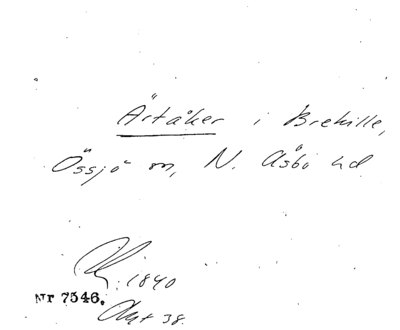 Ärtåker i Brehille,
Össjö sn, N. Åsbo hd
1840
Nr 7546.
Akt 38.